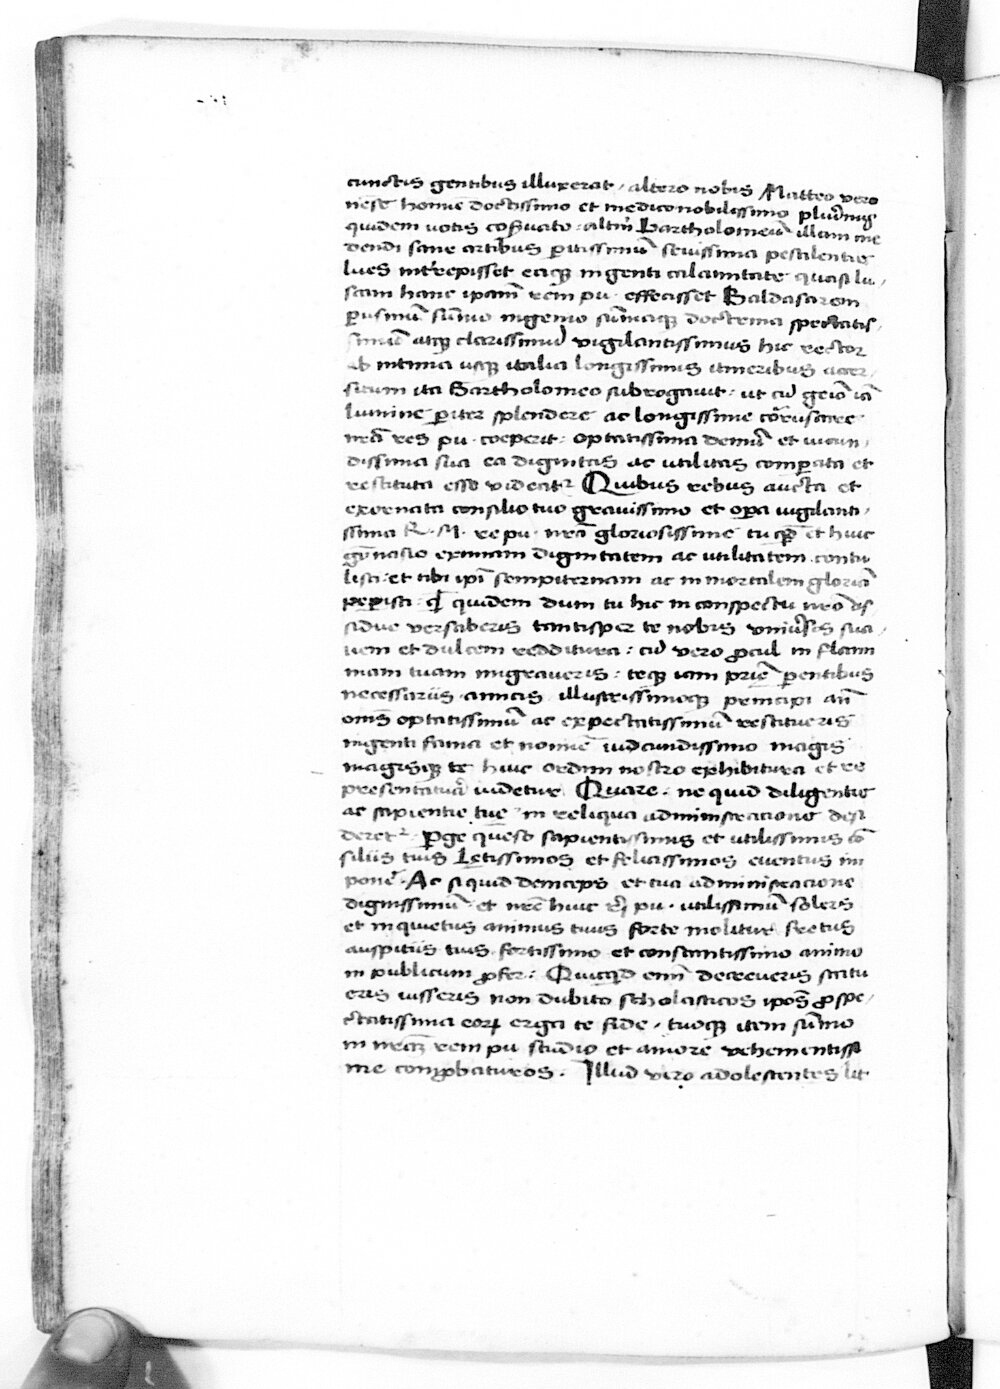 cunctis gentibus illuxerat, altero nobis Matteo vero
nese homīe doctissimo et medico nobilissimo
quidem votis coſervato altm̄ Bartholomeū illum me
dendi sane artibus ꝑitissimū sevissima pestilentie
lues intrepisset eaqꝫ ingenti calamitate quasi lu
scam hanc ipam̄ rem pu. effecisset Baldasarem
ꝑusinum̄ sūmo ingenio sūmaqꝫ doctrina spectatis
simū atqꝫ clarissimū vigilantissimus hic rector
ab intima usqꝫ italia longissimis itineribus accer
situm ita Bartholomeo subrogavit, ut cū geīo iā
lumine ꝑiter splendere ac longissime coruscare
nr̄a res pu. coeperit: optatissima demū et iucun
dissima sua ea dignitas ac utilitas comꝑata et
restituta esse videat᷑ Quibus rebus aucta et
exornata consilio tuo gravissimo et oꝑa vigilanti
ssima R. M. re pu. nr̄a gloriosissime tu et huic
gymnasio eximiam dignitatem ac utilitatem contu
listi: et tibi ipī sempiternam ac immortalem gloriā
peperisti: quidem dum tu hic in conspectu nr̄o as
sidue versaberis tantisper te nobis suа
vem et dulcem redditura: cū vero ꝓcul in flam
mam tuam migraveris: teqꝫ iam ꝑentibus
necessariis amicis illustrissimoqꝫ principi
oms̄ optatissimū ac expectatissimū restitueris
ingenti fama et nomīe iudcundissimo magis
magisqꝫ te huic ordini nostro exhibitura et re
presentatura videtur Quare, ne quid diligentie
ac sapientie tue in reliqua administracione desi
deret᷑ ꝑge queso sapientissimis et utilissimis cō
siliis tuis Letissimos et felicissimos eventus im
ponē. Ac si quid deinceps et tua administracione
dignissimū et nr̄e huic rei pu. utilissimū soleris
et inquietus animus tuus forte molitur fretus
auspitiis tuis fortissimo et constantissimo animo
in publicum ꝓfer: Quicqd enim decreveris statu
eris iusseris non dubito scholasticos ipos̄ ꝓ spe
ctatissima eoꝝ erga te fide, tuoqꝫ item sūmo
in rem pu studio et amore vehementissi
me comꝓbaturos. Illud vero adolescentes lit